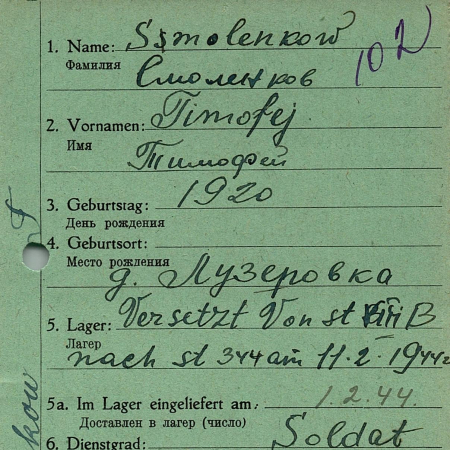 1. Name: Ssmolenkow
102
Фамилия Смоленков
2. Vornamen: Timofej
Имя
Тимофей
3. Geburtstag: 1920
День рождения
4. Geburtsort:
Место рождения
д. Лузеровка
5. Lager: Versetzt Von st B
Лагер
nach st 344 am 11.2.1944
5a. Im Lager eingeliefert am: 1.2.44.
Доставлен в лагер (число)
6. Dienstgrad: Soldat
kow